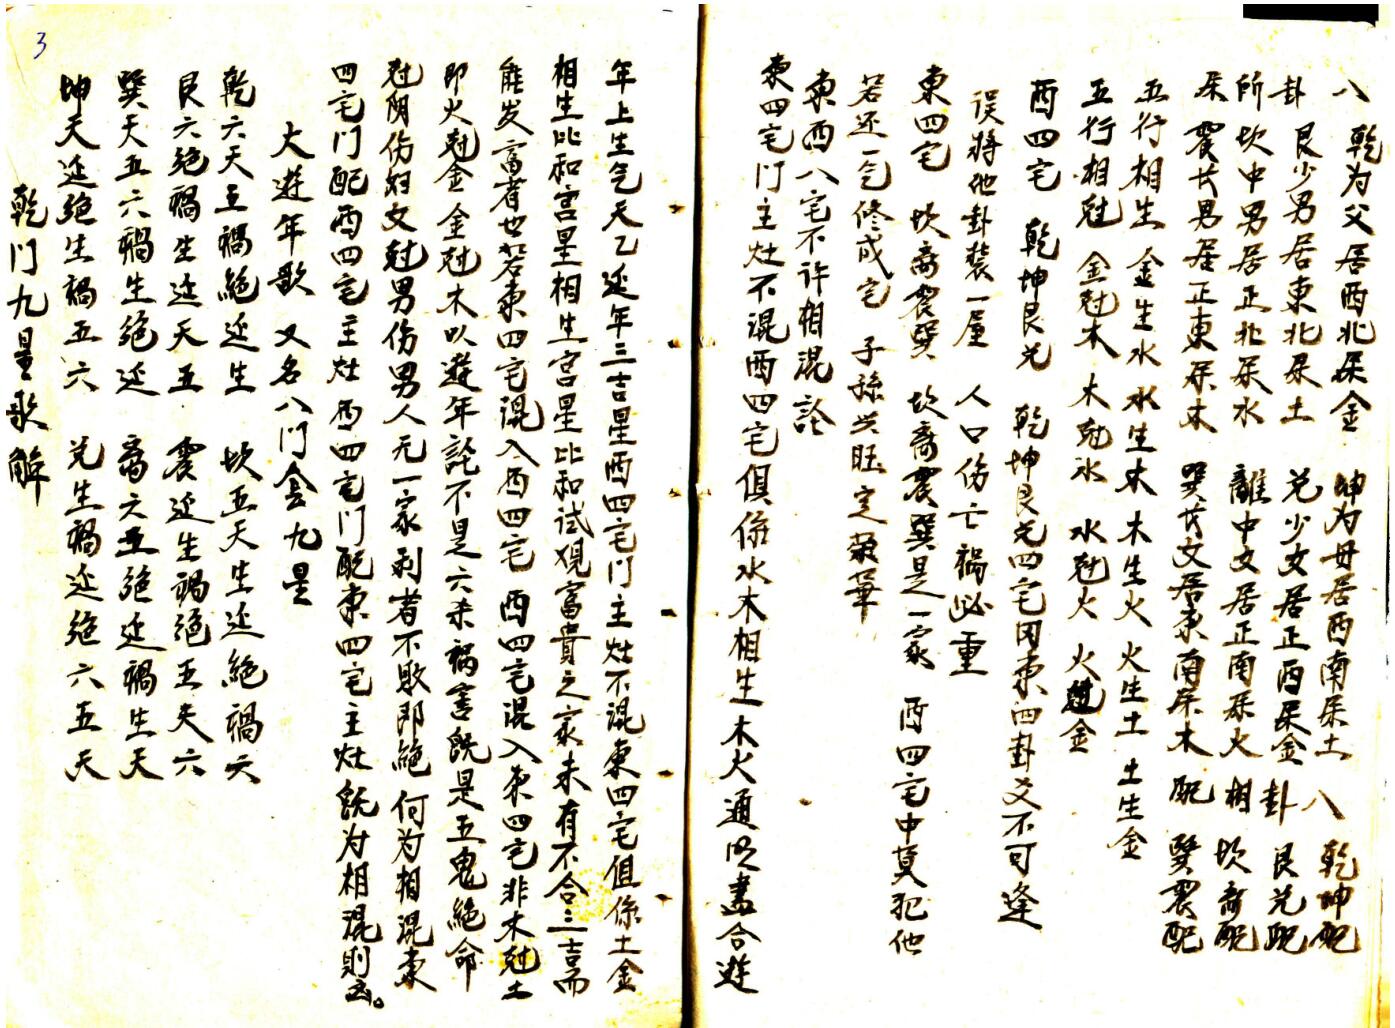 八 乾为父居西北屬金 坤为母居西南屬土 八 乾坤配
卦 艮少男居東北屬土 兑少女居正西屬金 卦 艮兑配
所 坎中男居正北屬水 離中女居正南屬火 相 坎离配
屬 震長男居正東屬木 巽長女居東南屬木 配 巽震配
五行相生 金生水 水生木 木生火 火生土 土生金
五行相尅 金尅木 木尅水 水尅火 火尅金
西四宅 乾坤艮兑 乾坤艮兑四宅同東四卦爻不可逢
误將他卦装一屋 人口伤亡祸必重
東四宅 坎离震巽 坎离震巽是一家 西四宅中莫犯他
若还一气修成宅 子孫兴旺定荣華
東西八宅不许相混論
東四宅门主灶不混西四宅俱係水木相生木火通明盡合遊
年上生气天乙延年三吉星西四宅门主灶不混東四宅但係土金
相生比和宫星相生宫星比和试观富貴之家未有不合三吉而
能发富者也若東四宅混入西四宅 西四宅混入東四宅非木尅土
即火尅金金尅木以遊年論不是六杀祸害既是五鬼絶命
尅阴伤妇女尅男伤男人元一家刹者不敗即絶 何为相混東
四宅门配西四宅主灶 西四宅门配東四宅主灶既为相混则凶。
大遊年歌 又名八门套九星
乾六天五禍絕延生 坎五天生延絕禍六
艮六絕禍生延天五 震延生禍絕五天六
巽天五六禍生絕延 离六五絕延禍生天
坤天延絕生禍五六 兑生禍延絕六五天
乾门九星歌解
3